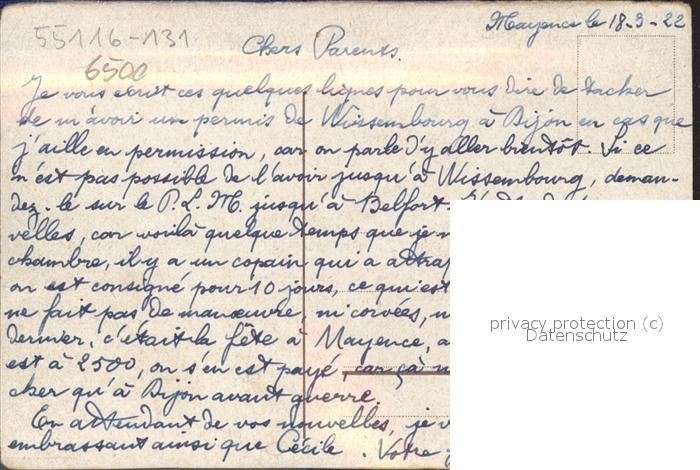 55116-131
Mayence le 18-3-22
6500
Chers Parents.
Je vous écrit ces quelques lignes pour vous dire de tacker
de m'avoir un permis de Wissembourg à Dijon en cas que
j'aille en permission, car on parle d'y aller bientôt. Si ce
n'est pas possible de l'avoir jusqu'à Wissembourg, deman-
dez-le sur le P.L.M. jusqu'à Belfort
velles, car voilà quelque temps que je
chambre, il y a un copain qui a attrap
on est consigné pour 10 jours, ce qui est
ne fait pas de manœuvre, ni corvées,
dernier, c'était la fête à Mayence,
est à 2500, on s'en est payé, car çà
cker qu'à Dijon avant guerre.
En attendant de vos nouvelles, je
embrassant ainsi que Cécile. Votre
privacy protection (c)
Datenschutz